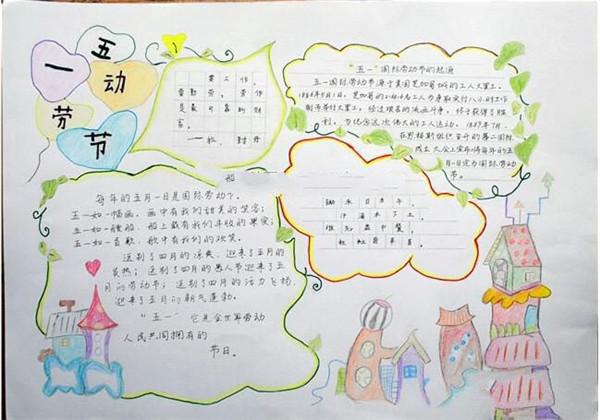 五一
劳动节
要工作，
要勤劳，劳作
是最可靠的财
富。
"五一"国际劳动节的起源
五一国际劳动节源于美国芝加哥城的工人大罢工。
1886年5月1日，芝加哥的
工人为争取实行八小时工作
制而举行大罢工，经过艰苦的流血斗争，终于获得了胜
利。为纪念这次伟大的工人运动，1889年7月，
在恩格斯组织召开的第二国际
成立大会上宣布将每年的五
月一日定为国际劳动
节。
船
锄禾日当午，
汗滴禾下土。
谁知盘中餐，
粒粒皆辛苦。
每年的五月一日是国际劳动节。
五一如一幅画，画中有我们甜美的笑容；
五一如一艘船，船上载有我们丰收的果实；
五一如一首歌，歌中有我们的欢笑。
送别了四月的凉爽，迎来了五月的
炎热；送别了四月的愚人节迎来了五
月的劳动节；送别了四月的活力飞扬，
迎来了五月的朝气蓬勃。
"五一"它是全世界劳动
人民共同拥有的
节日。